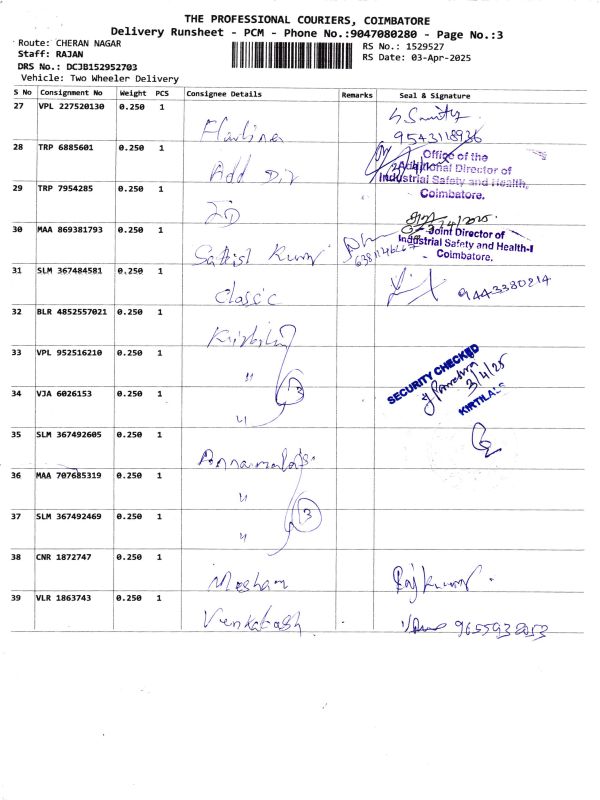 THE PROFESSIONAL COURIERS, COIMBATORE
Delivery Runsheet - PCM - Phone No.:9047080280 - Page No.:3
Route: CHERAN NAGAR
Staff: RAJAN
DRS No.: DCJB152952703
Vehicle: Two Wheeler Delivery
RS No.: 1529527
RS Date: 03-Apr-2025
S No Consignment No Weight PCS Consignee Details Remarks Seal & Signature
27 VPL 227520130 0.250 1
9543118936
28 TRP 6885601 0.250 1 Add Dir
Office of the
Additional Director of
Industrial Safety and Health,
Coimbatore.
29 TRP 7954285 0.250 1 JD
30 MAA 869381793 0.250 1 Satish Kumar
Joint Director of
Industrial Safety and Health-I
Coimbatore.
31 SLM 367484581 0.250 1 Classic 9443380214
32 BLR 4852557021 0.250 1
33 VPL 952516210 0.250 1 "
SECURITY CHECKED
3/4/25
KIRTILALS
34 VJA 6026153 0.250 1 " 3
35 SLM 367492605 0.250 1 Annamalai
36 MAA 707685319 0.250 1 "
37 SLM 367492469 0.250 1 " 3
38 CNR 1872747 0.250 1 Rajkumar
39 VLR 1863743 0.250 1 Venkatesh 9655938053